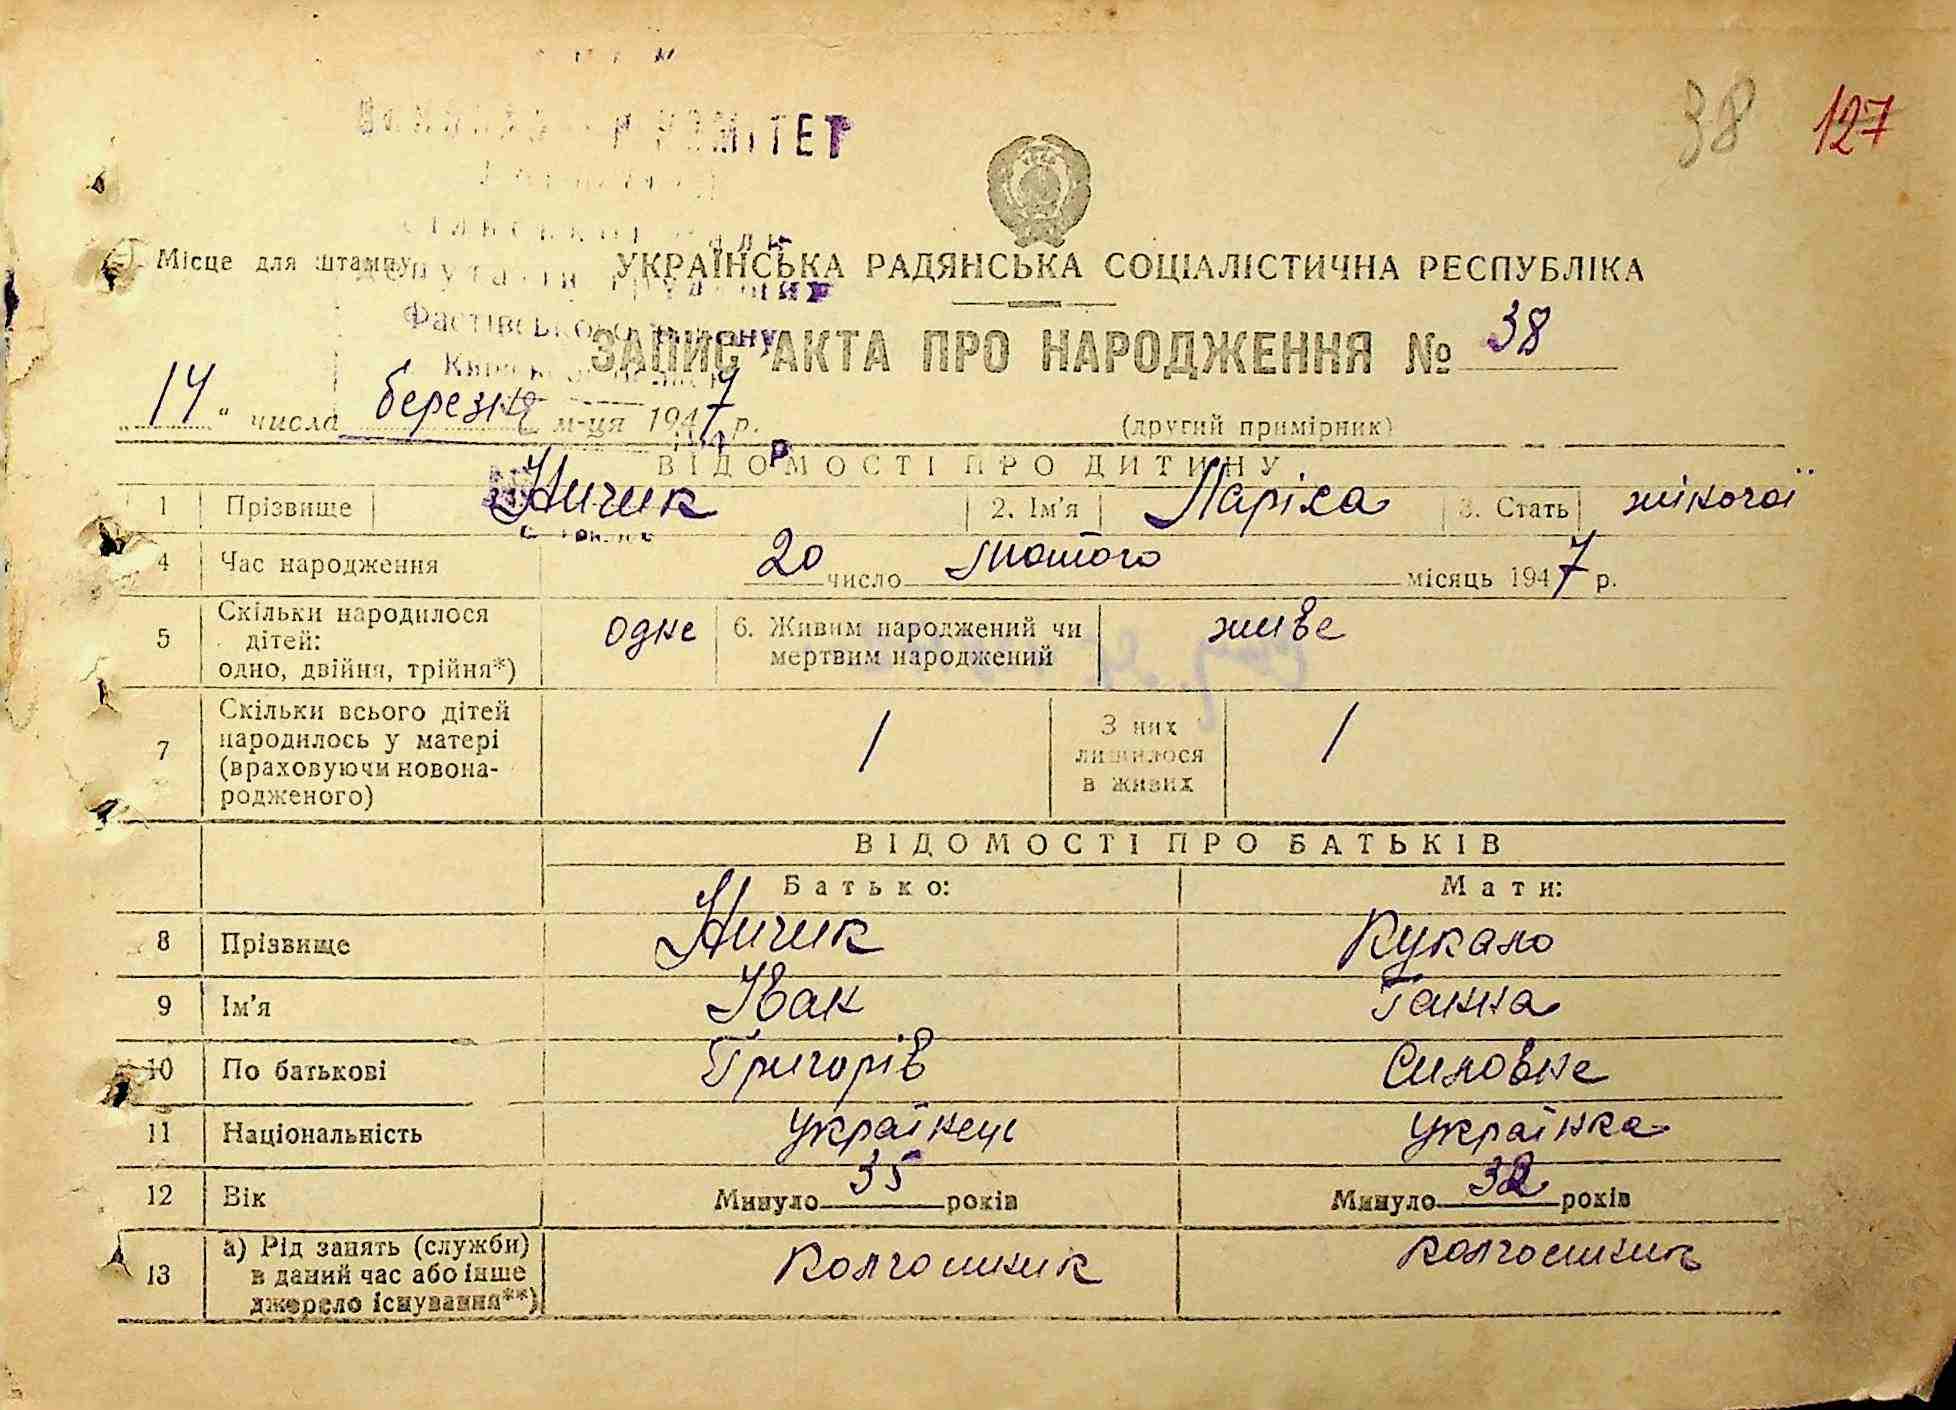 38 127
КОМІТЕТ
Місце для штампу
УКРАЇНСЬКА РАДЯНСЬКА СОЦІАЛІСТИЧНА РЕСПУБЛІКА
Фастівського району
ЗАПИС АКТА ПРО НАРОДЖЕННЯ № 38
„14“ числа березня м-ця 1947 р.
(другий примірник)
ВІДОМОСТІ ПРО ДИТИНУ
1 Прізвище Ничик 2. Ім'я Ларіса 3. Стать жіночої
4 Час народження 20 число лютого місяць 1947 р.
5 Скільки народилося дітей: одно, двійня, трійня*) одне 6. Живим народжений чи мертвим народжений живе
7 Скільки всього дітей народилось у матері (враховуючи новонародженого) 1 З них лишилося в живих 1
ВІДОМОСТІ ПРО БАТЬКІВ
Батько: Мати:
8 Прізвище Ничик Кукало
9 Ім'я Іван Ганна
10 По батькові Григорів Силовне
11 Національність українець українка
12 Вік Минуло 35 років Минуло 32 років
13 а) Рід занять (служби) в даний час або інше джерело існування**) Колгоспник колгоспник